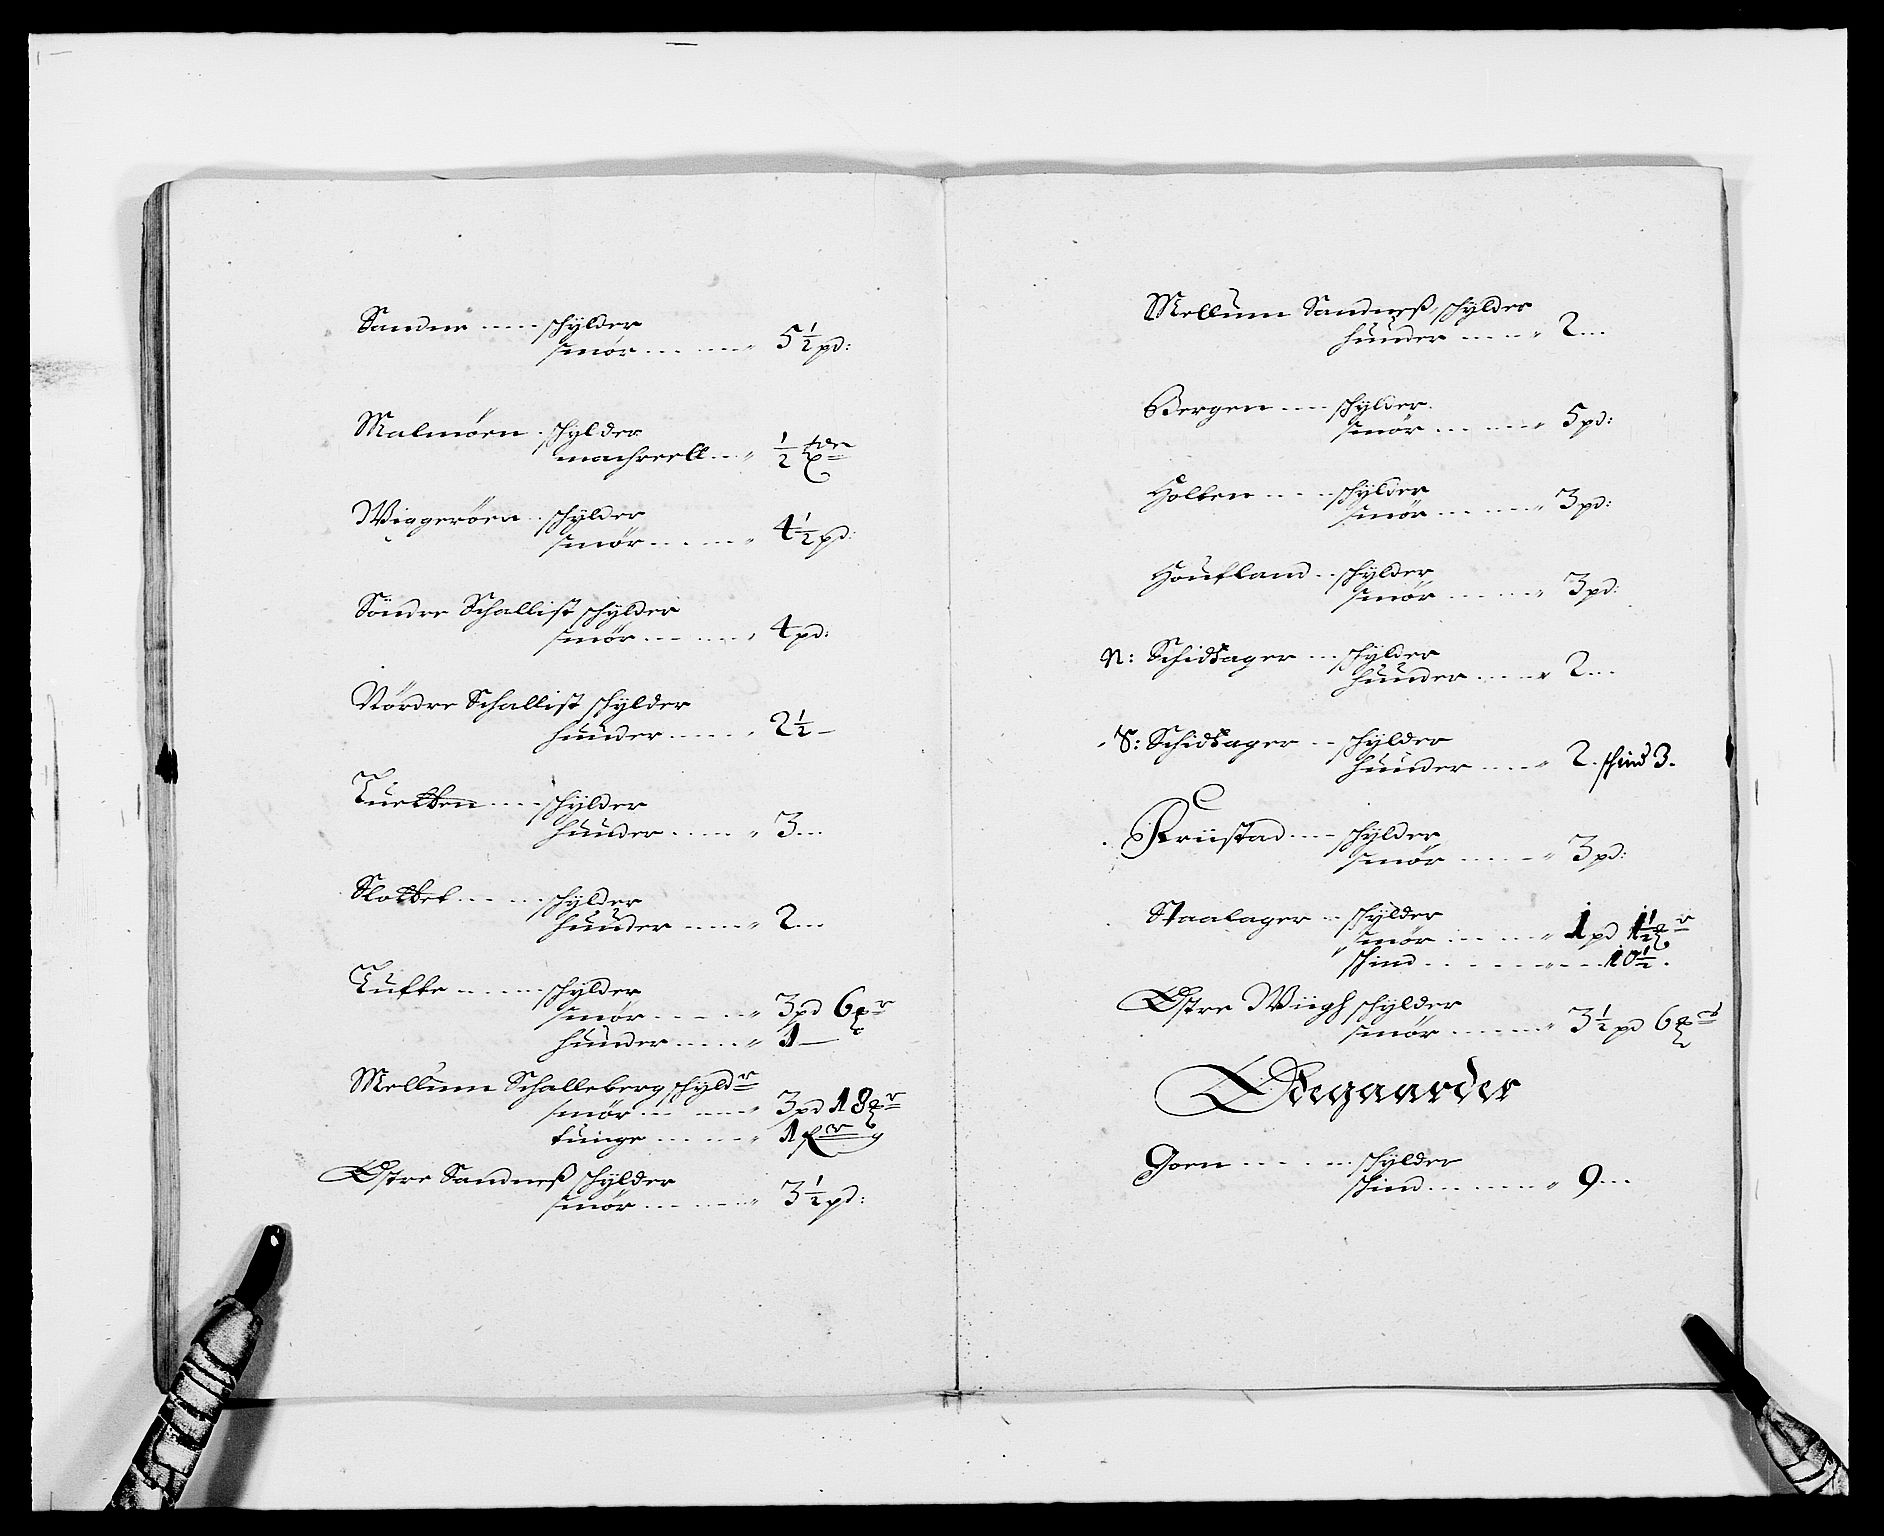 Sandne ..... schÿlder
smör ...... " 5½ pd:
Malmöen . schÿlder
machreell ... " ½ tde
Wiggeröen . schÿlder
smör ...... " 4½ pd:
Söndre Schallist schÿlder
smör ...... " 4 pd:
Nördre Schallist schÿlder
huuder ...... " 2½ –
Tuetten .... schÿlder
huuder ...... " 3 ...
Slottet ...... schÿlder
huuder ...... " 2 ...
Tufte ...... schÿlder
smör ...... " 3 pd 6 mr
huuder ...... " 1 –
Mellum Schalleberg schÿldr
smör ...... " 3 pd 18 mr
tunge ...... " 1
Østre Sandneß schÿlder
smör ...... " 3½ pd:
Mellum Sandneß schÿlder
huuder ...... " 2 ...
Bergen .... schÿlder
smör ...... " 5 pd:
Holten ..... schÿlder
smör ...... " 3 pd:
Houfland .. schÿlder
smör ...... " 3 pd:
N: Schidsager ... schÿlder
huuder ...... " 2 ...
S: Schidsager ... schÿlder
huuder ...... " 2. schind 3.
Kriistad .... schÿlder
smör ...... " 3 pd:
Staalager .. schÿlder
smör ...... " 1 pd 1½ mr
schind ...... " 10½.
Østre Wiigh schÿlder
smör ...... " 3½ pd 6 mr
Ødegaarder
Goen ...... schÿlder
schind ...... " 9 ...